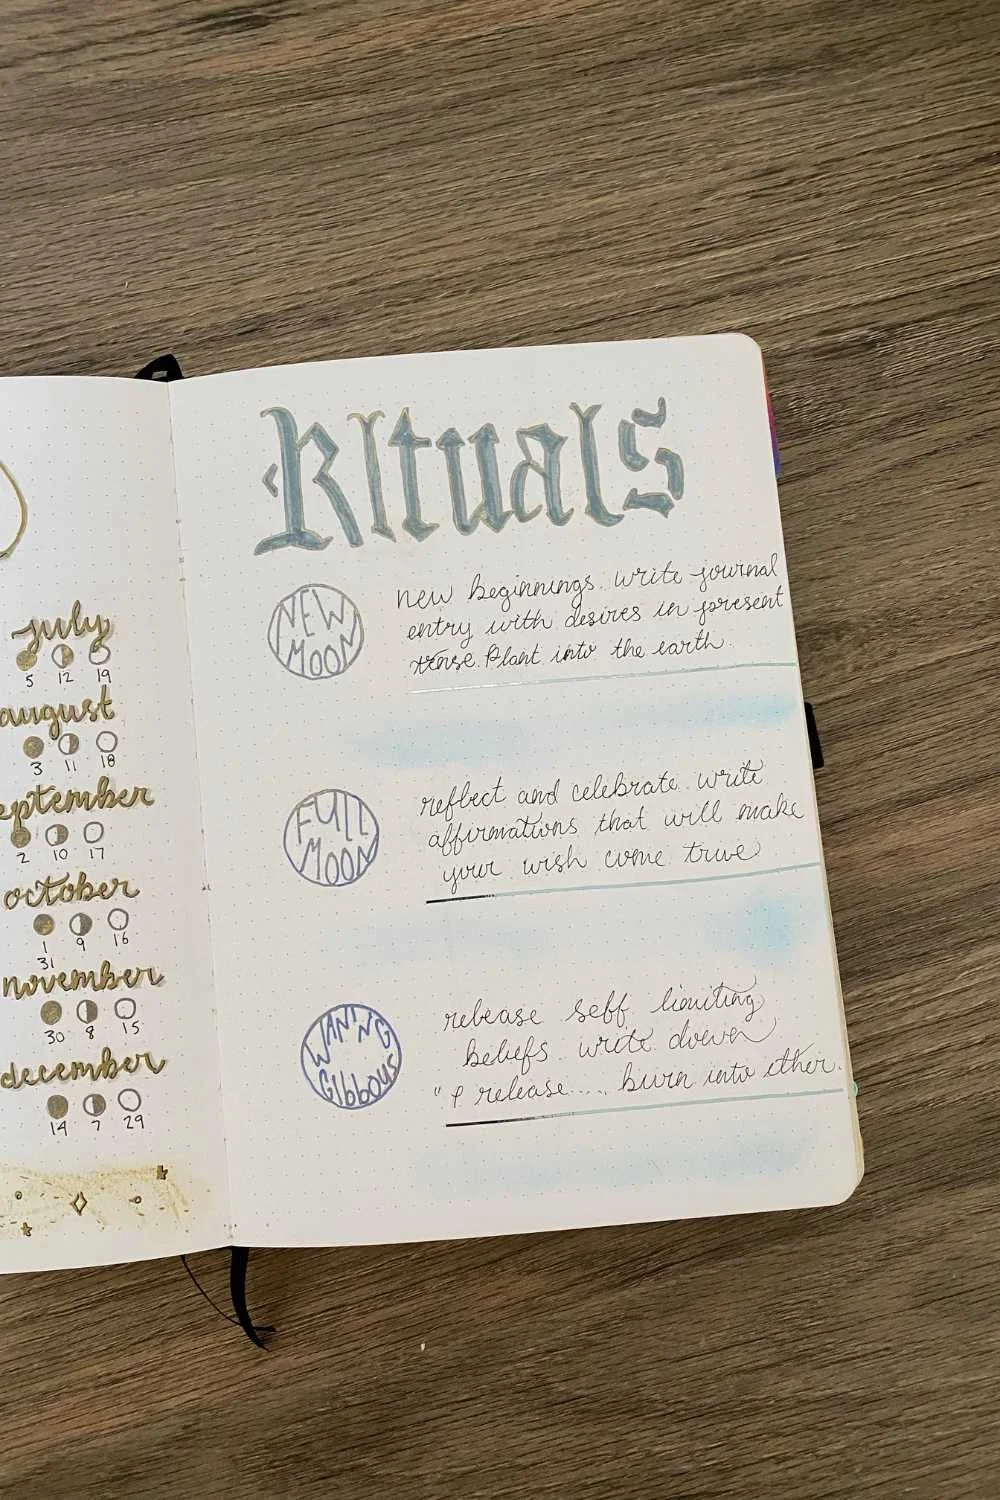 july
5 12 19
august
3 11 18
september
2 10 17
october
1 9 16
31
november
30 8 15
december
14 7 29
Rituals
NEW
MOON
new beginnings. write journal
entry with desires in present
tense. Plant into the earth.
FULL
MOON
reflect and celebrate. write
affirmations that will make
your wish come true
WANING
GIbbous
release self limiting
beliefs. write down
"I release.... burn into ether.